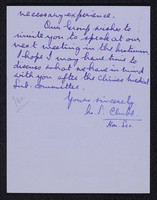 necessary experience.
Our Group wishes to
invite you to speak at our
next meeting in the Autumn
& hope I may have time to
discuss what we have in mind
with you after the Clinics Medical
Sub. Committee.
Yours sincerely
G. S. Chubb
Hon Sec.